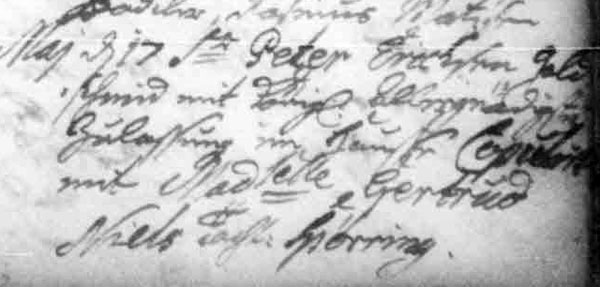 Maj d 17 Sr Peter Erichsen Gold
schmid mit Königl: Allergnädigst
Zulassung im Hause Copuliret
mit Madselle Gertrud
Niels Tochter Spörring.